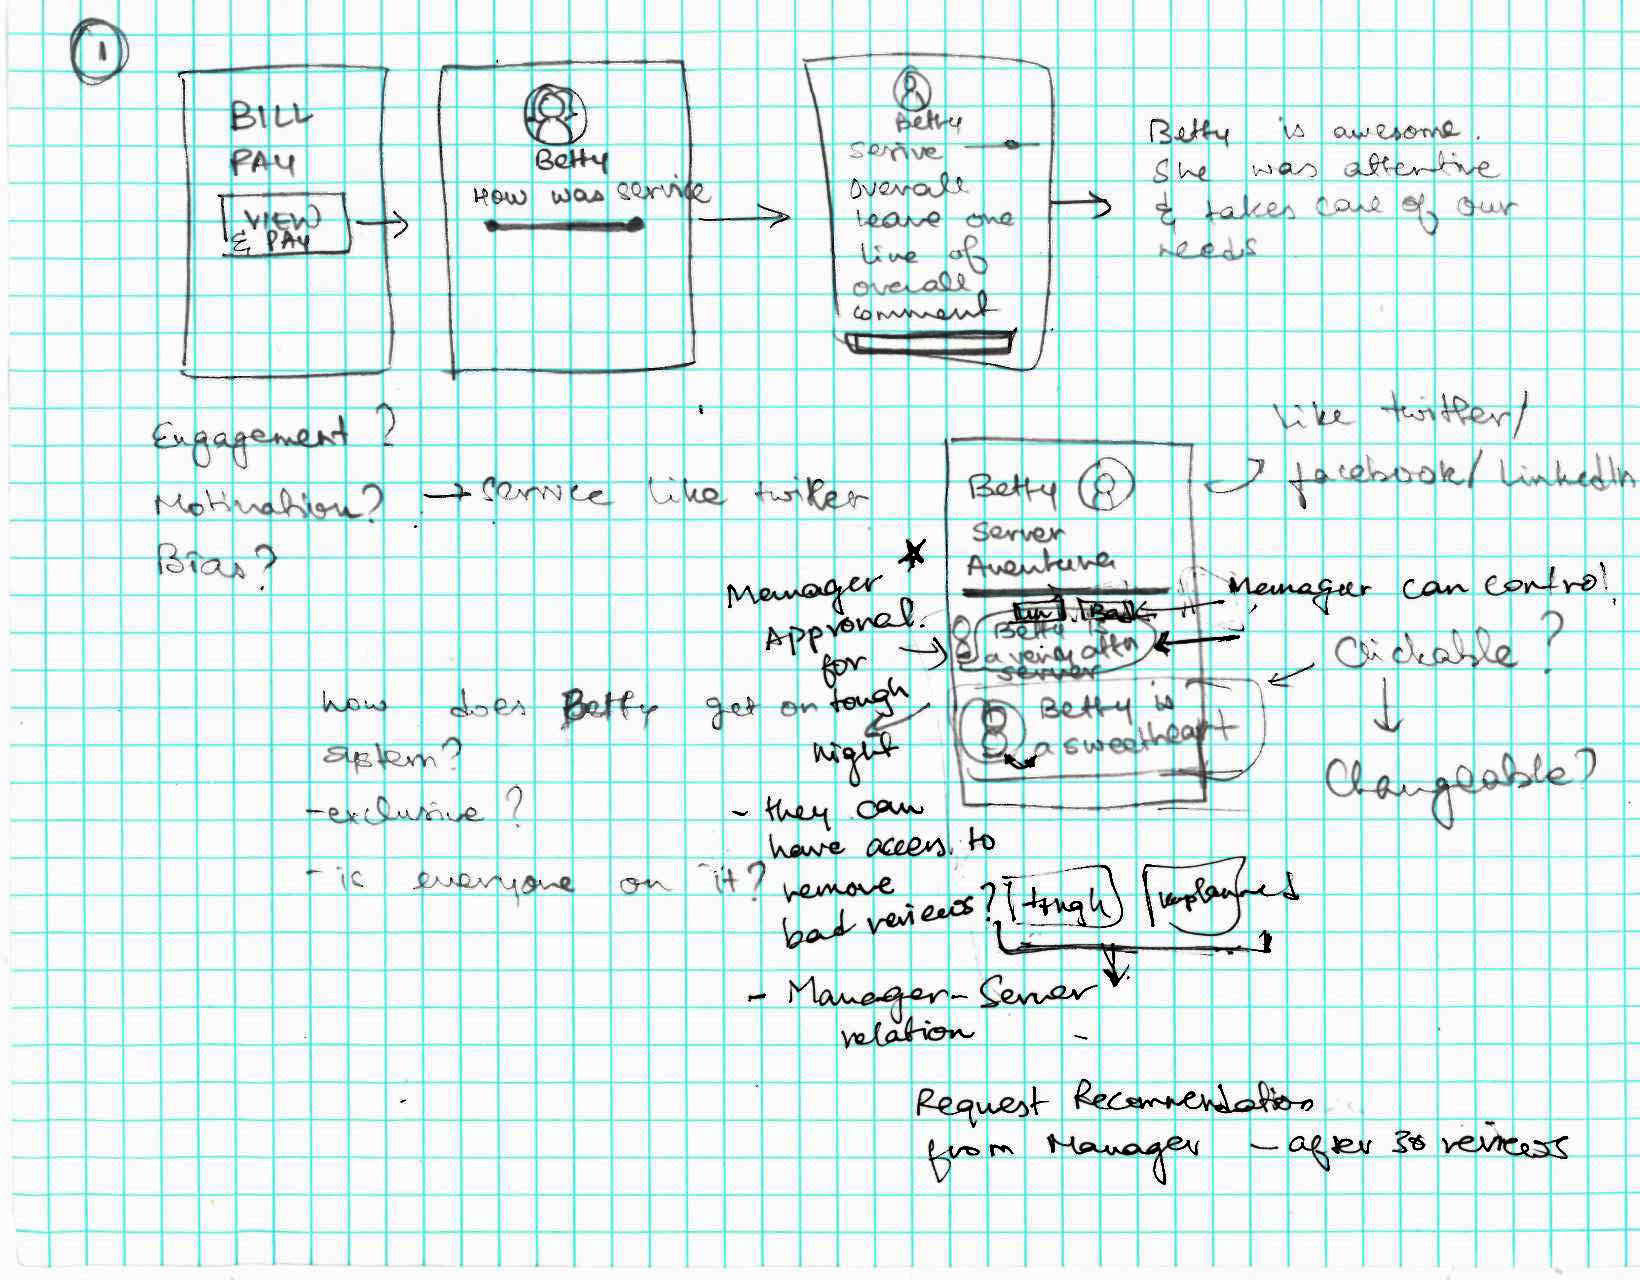 1
BILL
PAY
VIEW
& PAY
Betty
How was service
Betty
serive
overall
leave one
line of
overall
comment
Betty is awesome.
She was attentive
& takes care of our
needs
Engagement?
Motivation? → service like twitter
Bias?
like twitter/
facebook/LinkedIn
Betty
Server
Aventura
Manager can control
Betty is
a very attn
server
Betty is
a sweetheart
Clickable?
Changeable?
Manager
Approval.
for
tough
night
- they can
have access to
remove
bad reviews?
tough
- Manager-Server
relation
how does Betty get on
system?
- exclusive?
- is everyone on it?
Request Recommendation
from Manager - after 30 reviews